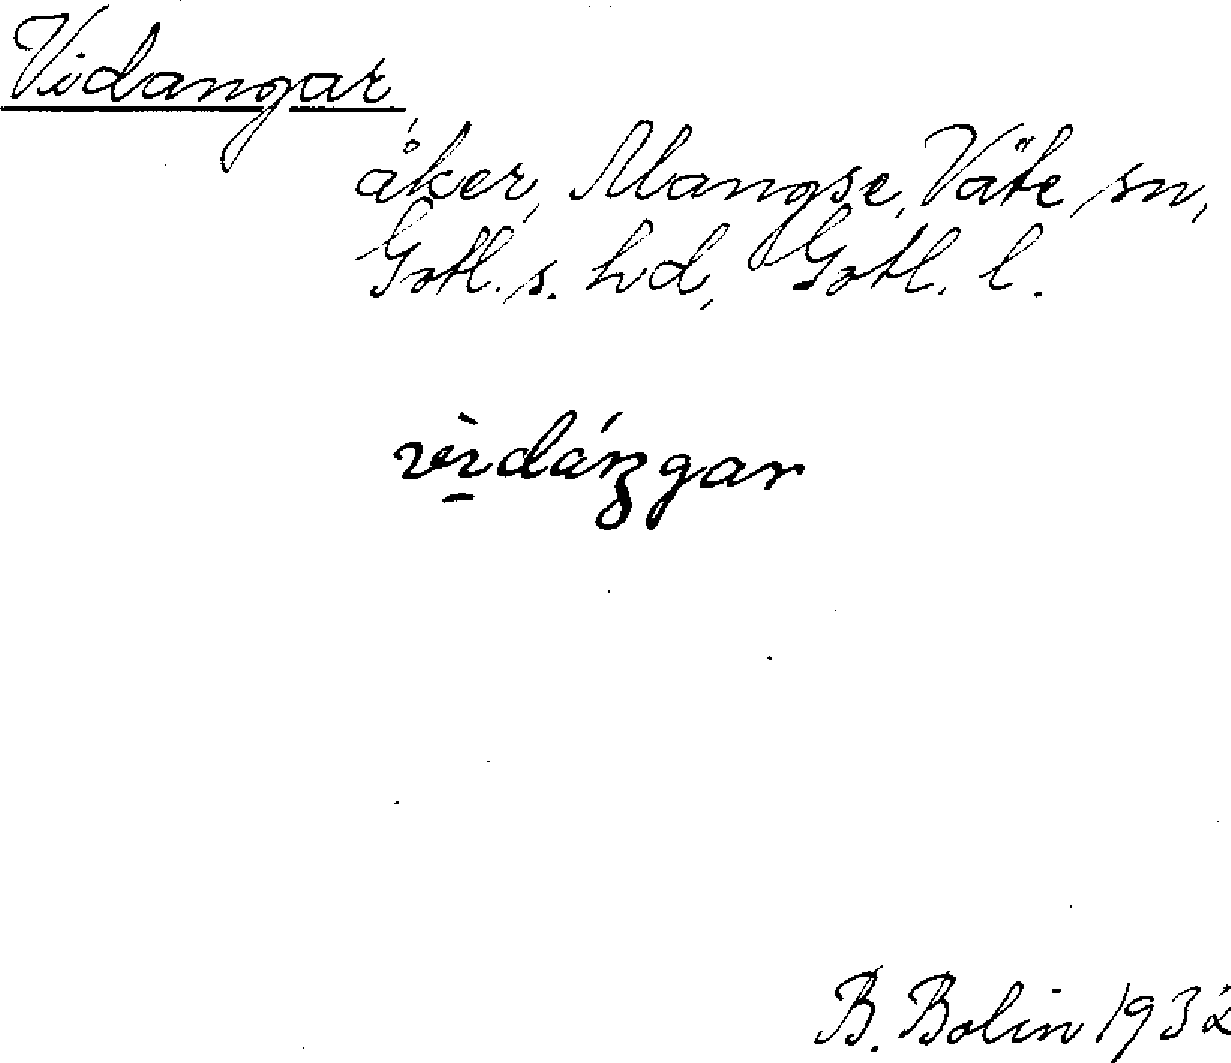 Vidangar,
åker, Mangse, Väte sn,
Gotl. s. hd, Gotl. l.
vìdáŋgar
B. Bolin 1932